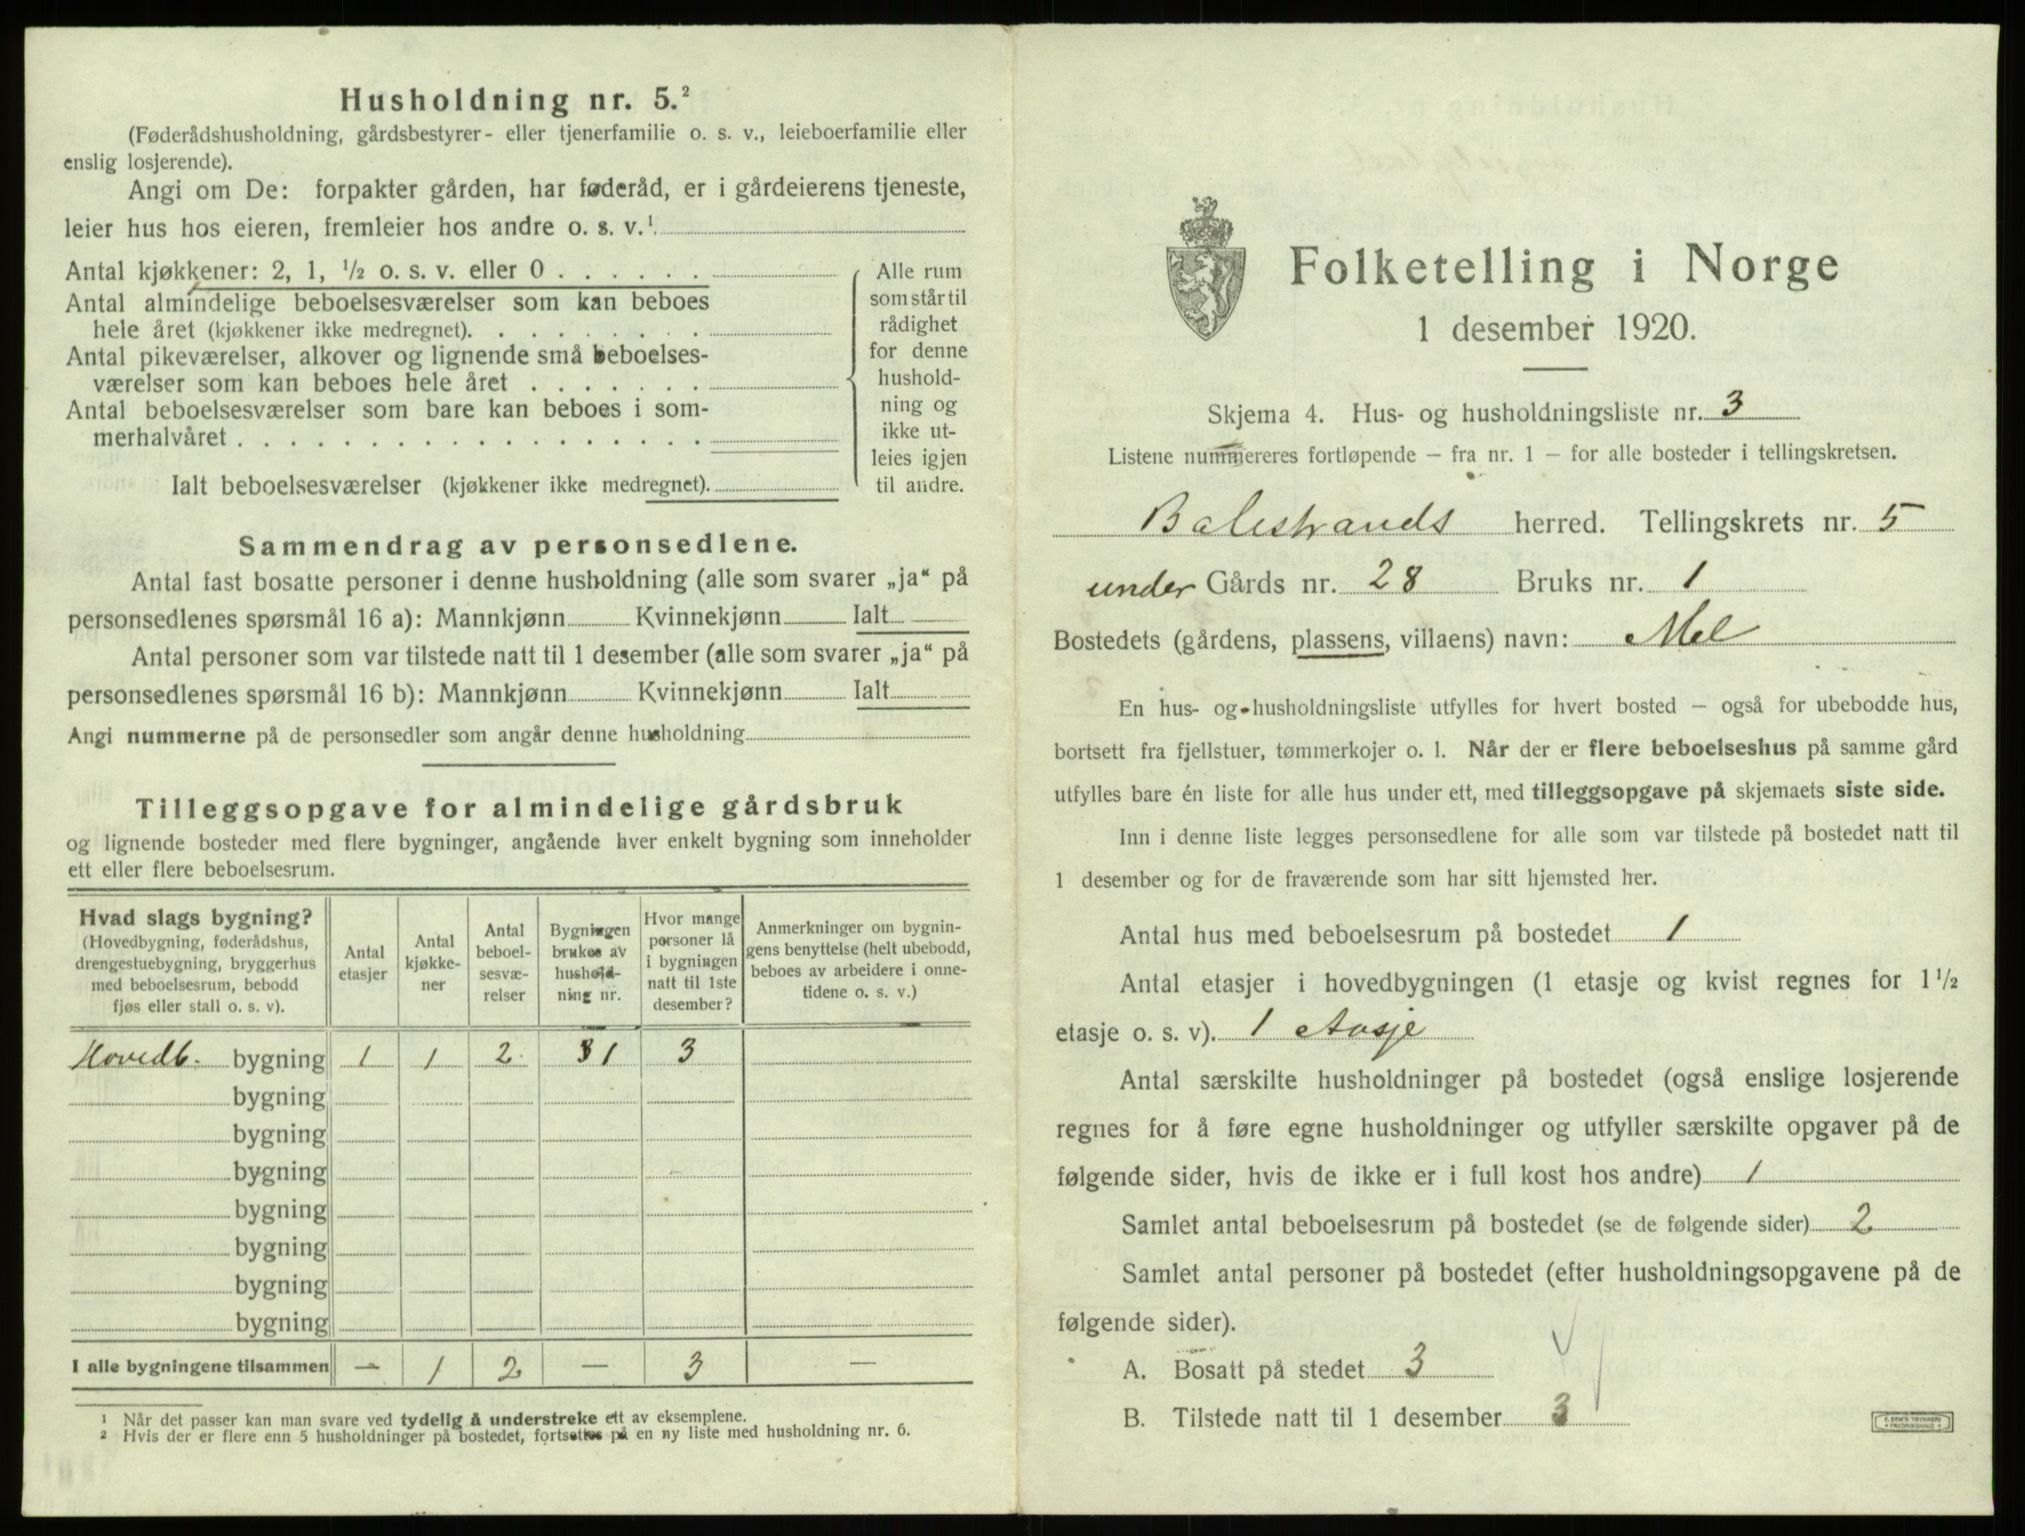 Husholdning nr. 5.²
(Føderådshusholdning, gårdsbestyrer- eller tjenerfamilie o. s. v., leieboerfamilie eller
enslig losjerende).
Angi om De: forpakter gården, har føderåd, er i gårdeierens tjeneste,
leier hus hos eieren, fremleier hos andre o. s. v.¹
Antal kjøkkener: 2, 1, ½ o. s. v. eller 0 . . . . . .
Antal almindelige beboelsesværelser som kan beboes
hele året (kjøkkener ikke medregnet). . . . . . . . .
Antal pikeværelser, alkover og lignende små beboelses-
værelser som kan beboes hele året . . . . . . .
Antal beboelsesværelser som bare kan beboes i som-
merhalvåret . . . . . . . . . . . . . . . . . .
Ialt beboelsesværelser (kjøkkener ikke medregnet).
Alle rum
som står til
rådighet
for denne
hushold-
ning og
ikke ut-
leies igjen
til andre.
Sammendrag av personsedlene.
Antal fast bosatte personer i denne husholdning (alle som svarer „ja“ på
personsedlenes spørsmål 16 a): Mannkjønn Kvinnekjønn Ialt
Antal personer som var tilstede natt til 1 desember (alle som svarer „ja“ på
personsedlenes spørsmål 16 b): Mannkjønn Kvinnekjønn Ialt
Angi nummerne på de personsedler som angår denne husholdning
Tilleggsopgave for almindelige gårdsbruk
og lignende bosteder med flere bygninger, angående hver enkelt bygning som inneholder
ett eller flere beboelsesrum.
Hvad slags bygning?
(Hovedbygning, føderådshus,
drengestuebygning, bryggerhus
med beboelsesrum, bebodd
fjøs eller stall o. s. v).
Antal
etasjer
Antal
kjøkke-
ner
Antal
beboel-
sesvæ-
relser
Bygningen
brukes av
hushold-
ning nr.
Hvor mange
personer lå
i bygningen
natt til 1ste
desember?
Anmerkninger om bygnin-
gens benyttelse (helt ubebodd,
beboes av arbeidere i onne-
tidene o. s. v.)
Hovedb. bygning 1 1 2. 1 3
bygning
bygning
bygning
bygning
bygning
bygning
bygning
I alle bygningene tilsammen — 1 2 — 3 —
¹ Når det passer kan man svare ved tydelig å understreke ett av eksemplene.
² Hvis der er flere enn 5 husholdninger på bostedet, fortsettes på en ny liste med husholdning nr. 6.
Folketelling i Norge
1 desember 1920.
Skjema 4. Hus- og husholdningsliste nr. 3
Listene nummereres fortløpende – fra nr. 1 – for alle bosteder i tellingskretsen.
Balestrands herred. Tellingskrets nr. 5
under Gårds nr. 28 Bruks nr. 1
Bostedets (gårdens, plassens, villaens) navn: Mel
En hus- og husholdningsliste utfylles for hvert bosted – også for ubebodde hus,
bortsett fra fjellstuer, tømmerkojer o. l. Når der er flere beboelseshus på samme gård
utfylles bare én liste for alle hus under ett, med tilleggsopgave på skjemaets siste side.
Inn i denne liste legges personsedlene for alle som var tilstede på bostedet natt til
1 desember og for de fraværende som har sitt hjemsted her.
Antal hus med beboelsesrum på bostedet 1
Antal etasjer i hovedbygningen (1 etasje og kvist regnes for 1½
etasje o. s. v). 1 etasje
Antal særskilte husholdninger på bostedet (også enslige losjerende
regnes for å føre egne husholdninger og utfyller særskilte opgaver på de
følgende sider, hvis de ikke er i full kost hos andre) 1
Samlet antal beboelsesrum på bostedet (se de følgende sider) 2
Samlet antal personer på bostedet (efter husholdningsopgavene på de
følgende sider).
A. Bosatt på stedet 3
B. Tilstede natt til 1 desember 3